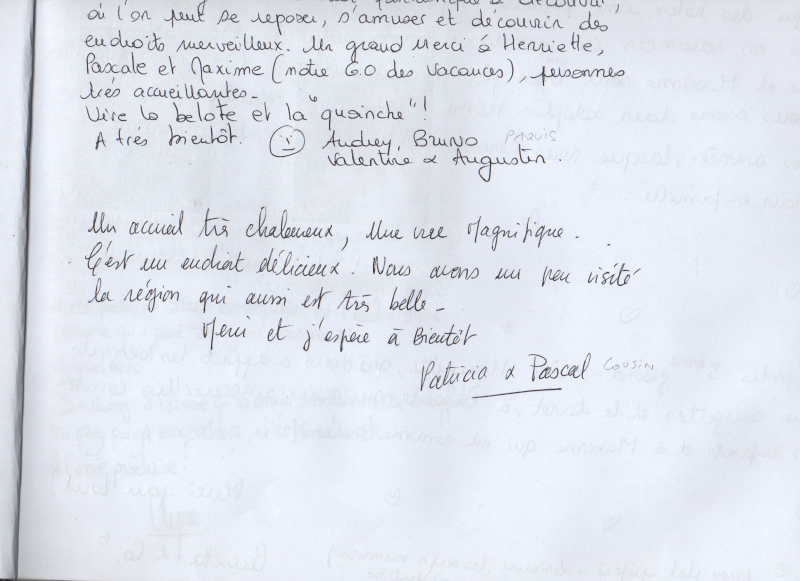 à découvrir,
où l'on peut se reposer, s'amuser et découvrir des
endroits merveilleux. Un grand merci à Henriette,
Pascale et Maxime (notre G.O des vacances), personnes
très accueillantes.
Vive la belote et la "quoinche"!
A très bientôt. Audrey, Bruno PAQUIS
Valentine & Augustin.
Un accueil très chaleureux, Une vue Magnifique.
C'est un endroit délicieux. Nous avons un peu visité
la région qui aussi est très belle -
Merci et j'espère à Bientôt
Patricia & Pascal Cousin